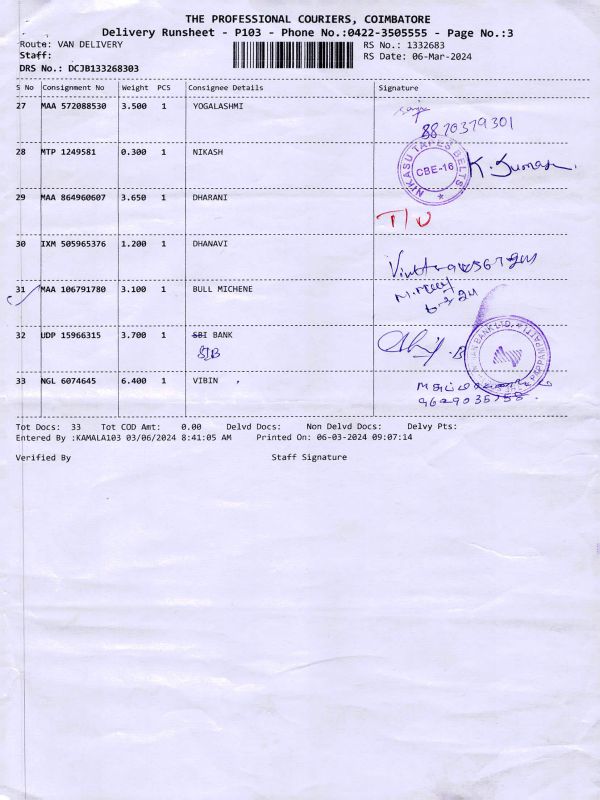 THE PROFESSIONAL COURIERS, COIMBATORE
Delivery Runsheet - P103 - Phone No.:0422-3505555 - Page No.:3
Route: VAN DELIVERY RS No.: 1332683
Staff: RS Date: 06-Mar-2024
DRS No.: DCJB133268303
S No Consignment No Weight PCS Consignee Details Signature
27 MAA 572088530 3.500 1 YOGALASHMI
8870379301
28 MTP 1249581 0.300 1 NIKASH K. Kumar
NIKASU TAPES BELTS
CBE-16
29 MAA 864960607 3.650 1 DHARANI
30 IXM 505965376 1.200 1 DHANAVI
31 MAA 106791780 3.100 1 BULL MICHENE
32 UDP 15966315 3.700 1 SBI BANK
33 NGL 6074645 6.400 1 VIBIN
9629035758
Tot Docs: 33 Tot COD Amt: 0.00 Delvd Docs: Non Delvd Docs: Delvy Pts:
Entered By :KAMALA103 03/06/2024 8:41:05 AM Printed On: 06-03-2024 09:07:14
Verified By Staff Signature